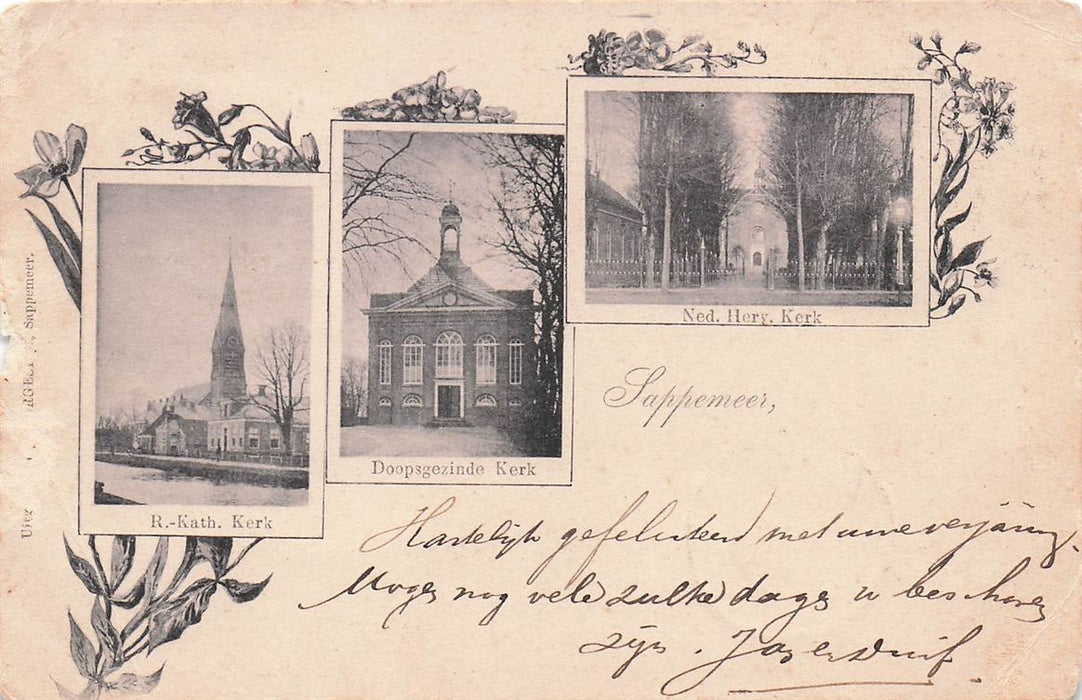 Ned. Herv. Kerk
Doopsgezinde Kerk
R.-Kath. Kerk
Sappemeer,
Hartelijk gefeliciteerd met uwe verjaring
Moge nog vele zulke dagen u beschoren
zijn.
Sappemeer.